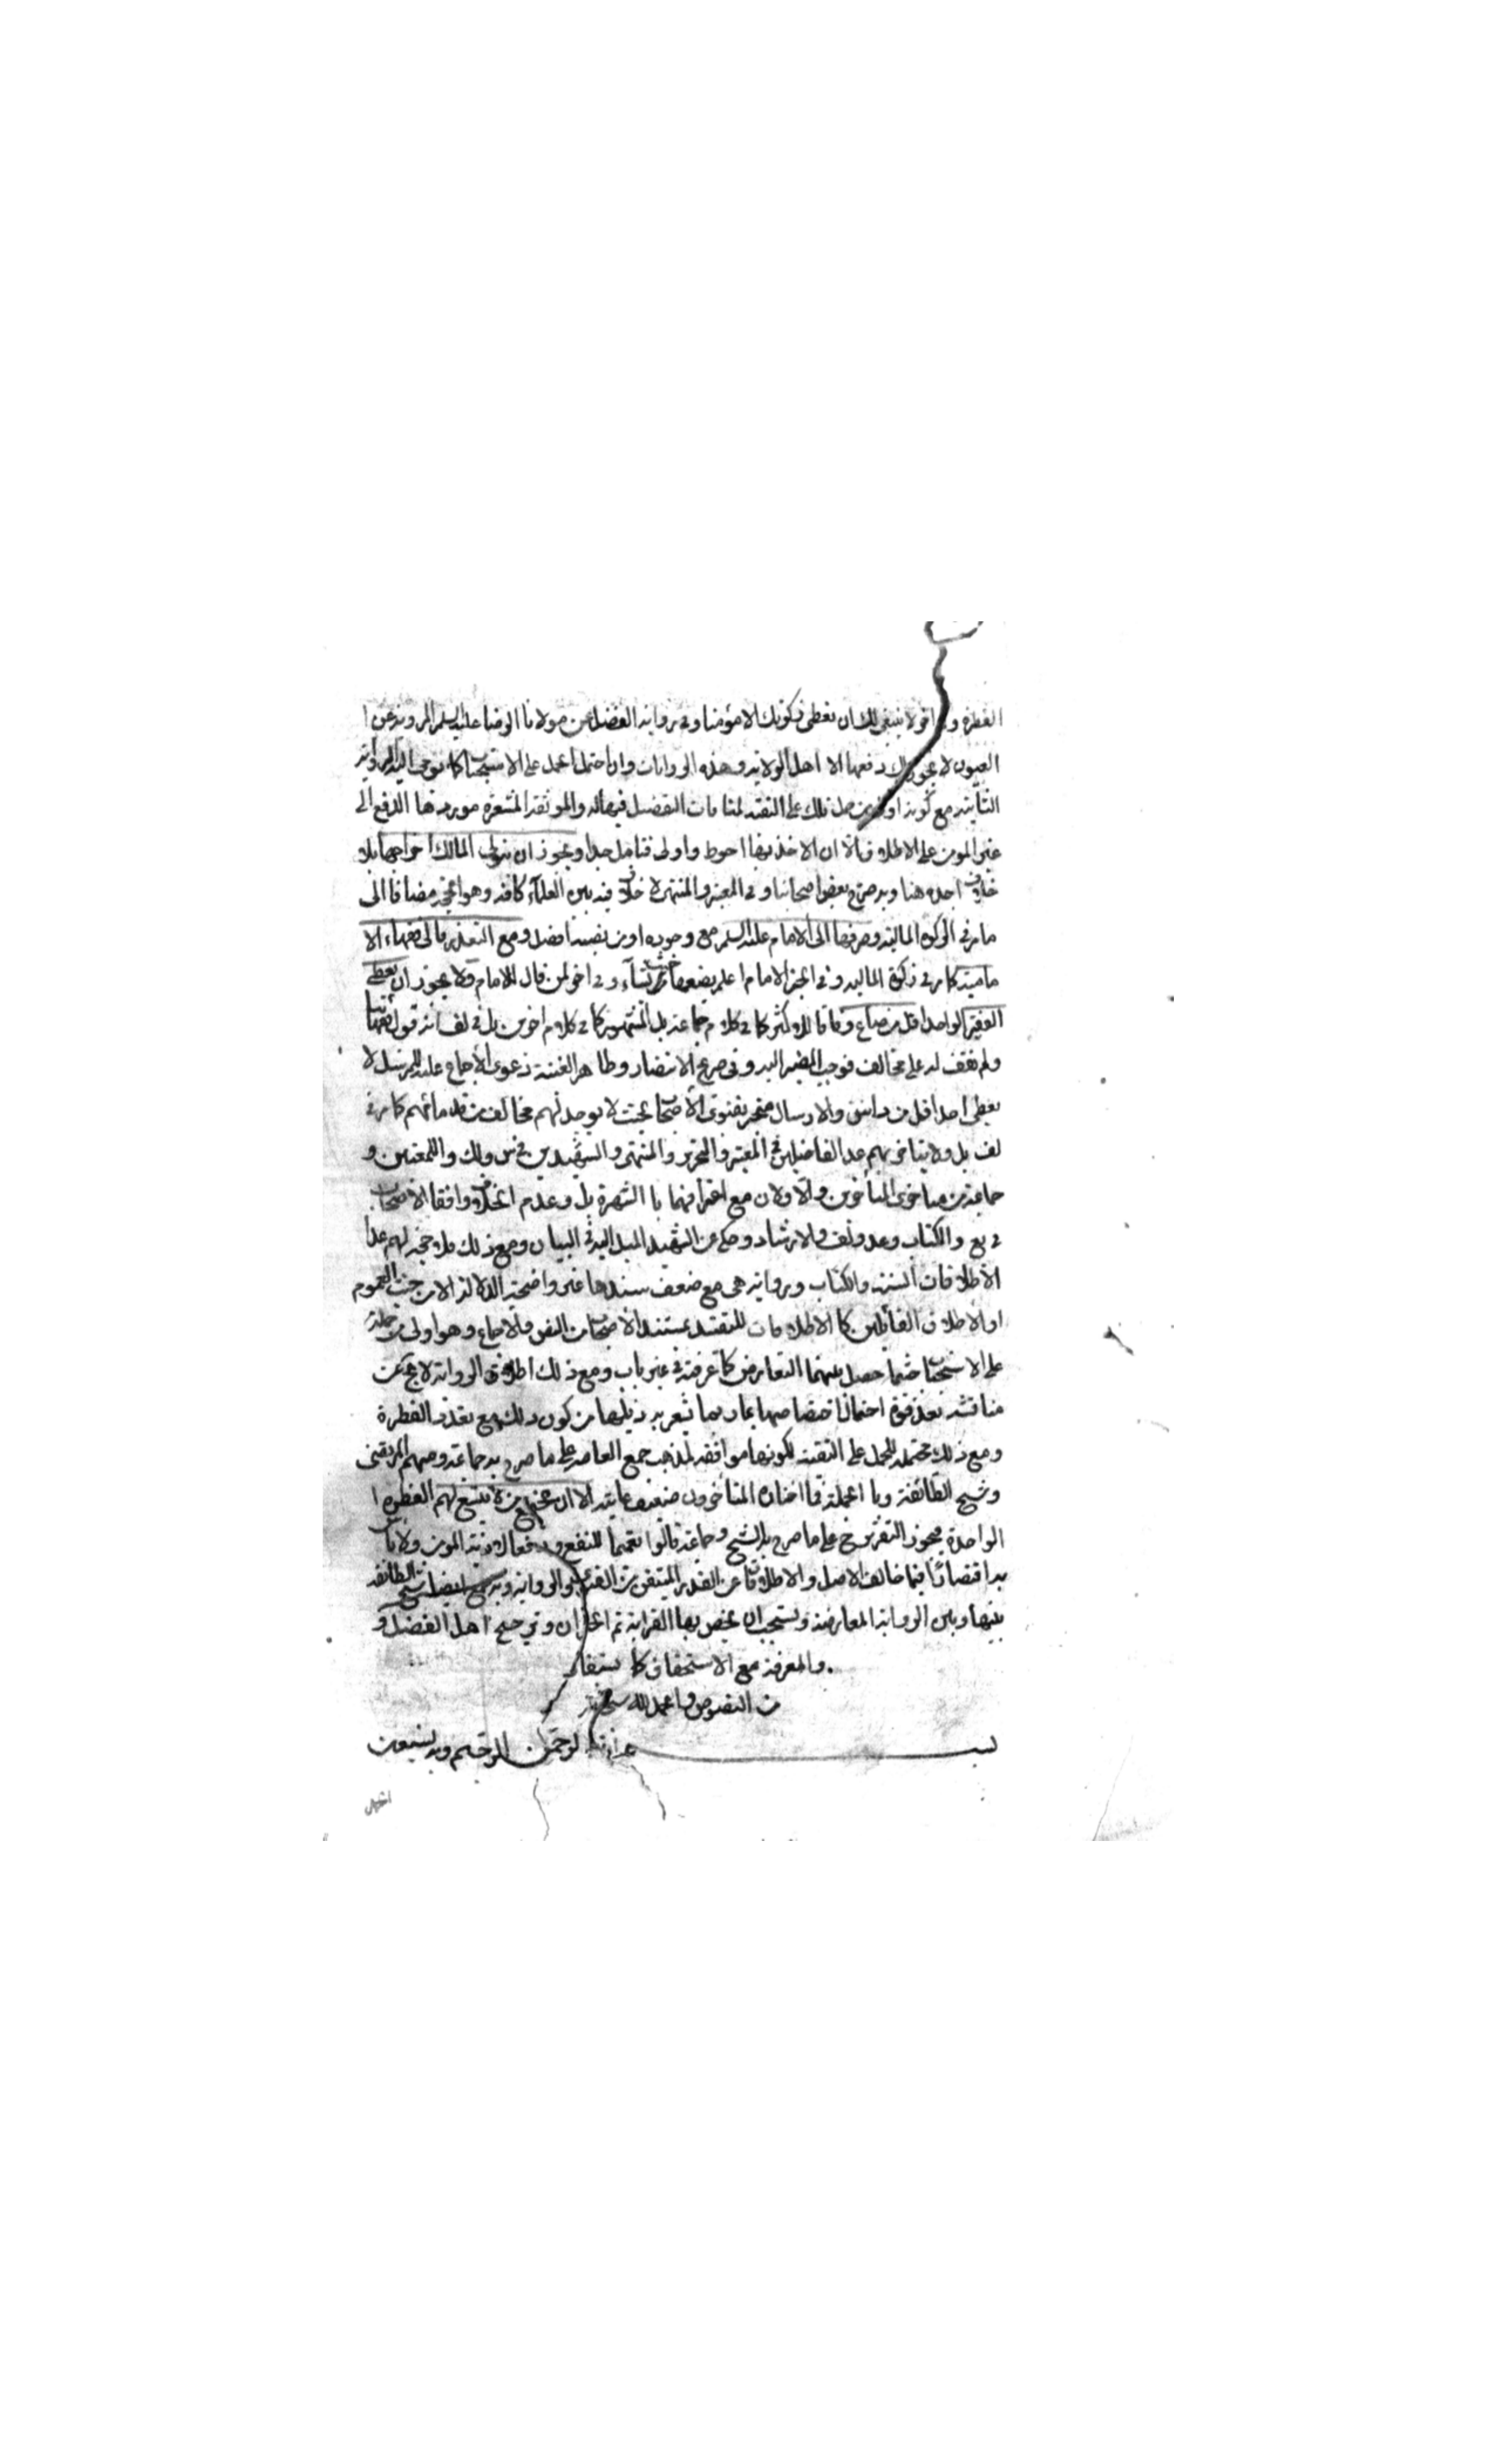 الفطرة وفي اخر لا ينبغي لك ان تعطي زكوتك الا مؤمنا وفي رواية الفضل عن مولانا الرضا عليه السلم المروية عن
العيون لا يجوز لك دفعها الا اهل الولاية وهذه الروايات وان احتمل الحمل على الاستحباب كما يومي اليه الرواية
الثانية مع كونه اولى من حمل تلك على التقية لمنافات التفصيل فيها له والموثقة المشعرة موردها الدفع الى
غير المومن على الاطلاق الا ان الاخذ بها احوط واولى فتامل جدا ويجوز ان يتولى المالك اخراجها بلا
خلاف اجده هنا وبه صرح بعض اصحابنا وفي المعتبر والمنتهى لا خلاف فيه بين العلماء كافة وهو الحجة مضافا الى
ما مر في الزكوة المالية وصرفها الى الامام عليه السلم مع وجوده او من نصبه افضل ومع التعذر فالى فقهاء الا
مامية كما مر في زكوة المالية وفي الخبر الامام اعلم يضعها حيث يشاء وفي اخر لمن قال للامام ولا يجوز ان يعطي
الفقير الواحد اقل من صاع وفاقا للاكثر كما في كلام جماعة بل المشهور كما في كلام اخرين بل في لف انه قول فقهائنا
ولم نقف له على مخالف فوجب المصير اليه وفي صريح الانتصار وظاهر الغنية دعوى الاجماع عليه للمرسل لا
يعطى احد اقل من راس والارسال منجبر بفتوى الاصحاب بحيث لا يوجد لهم مخالف من قدمائهم كما مر في
لف بل ولا متاخريهم عدا الفاضلين في المعتبر والتحرير والمنتهى والشهيدين في س ولك واللمعتين و
جماعة من متاخري المتأخرين والاولان مع اعترافهما با الشهرة بل وعدم الخلاف وافقا الاصحاب
في يع والكتاب وعد ولف والارشاد وحكي عن الشهيد الميل اليه في البيان ومع ذلك فلا حجة لهم عدا
الاطلاقات السنة والكتاب ورواية هي مع ضعف سندها غير واضحة الدلالة الا من حيث العموم
او الاطلاق القابلين كما الاطلاقات للتقييد بمستند الاصحاب من النص والاجماع وهو اولى من حمله
على الاستحباب حيثما حصل بينهما التعارض كما عرفته في غير باب ومع ذلك اطلاق الرواية لا يخ عن
مناقشة بعد قوة احتمال اختصاصها بما ربما يشعر به ذيلها من كون ذلك مع تعدد الفطرة
ومع ذلك محتملة للحمل على التقية لكونها موافقة لمذهب جميع العامة على ما صرح به جماعة ومنهم المرتضى
وشيخ الطائفة وبا الجملة فما اختاره المتأخرون ضعيف غايته الا ان يجتمع من لا يتسع لهم الفطرة
الواحدة فيجوز التفريق ح على ما صرح به الشيخ وجماعة قالوا تعميما للنفع ودفعا لاذية المومن ولا باس
به اقتصارًا فيما خالف الاصل والاطلاقات عن القدر المتيقن من الفتوى والرواية وبه جمع ايضا شيخ الطائفة
بينها وبين الرواية المعارضة ويستحب ان يخص بها القرابة ثم الجيران وترجيح اهل الفضل و
والمعرفة مع الاستحقاق كما يستفاد
من النصوص والحمد لله سبحانه
بسم الله الرحمن الرحيم وبه نستعين